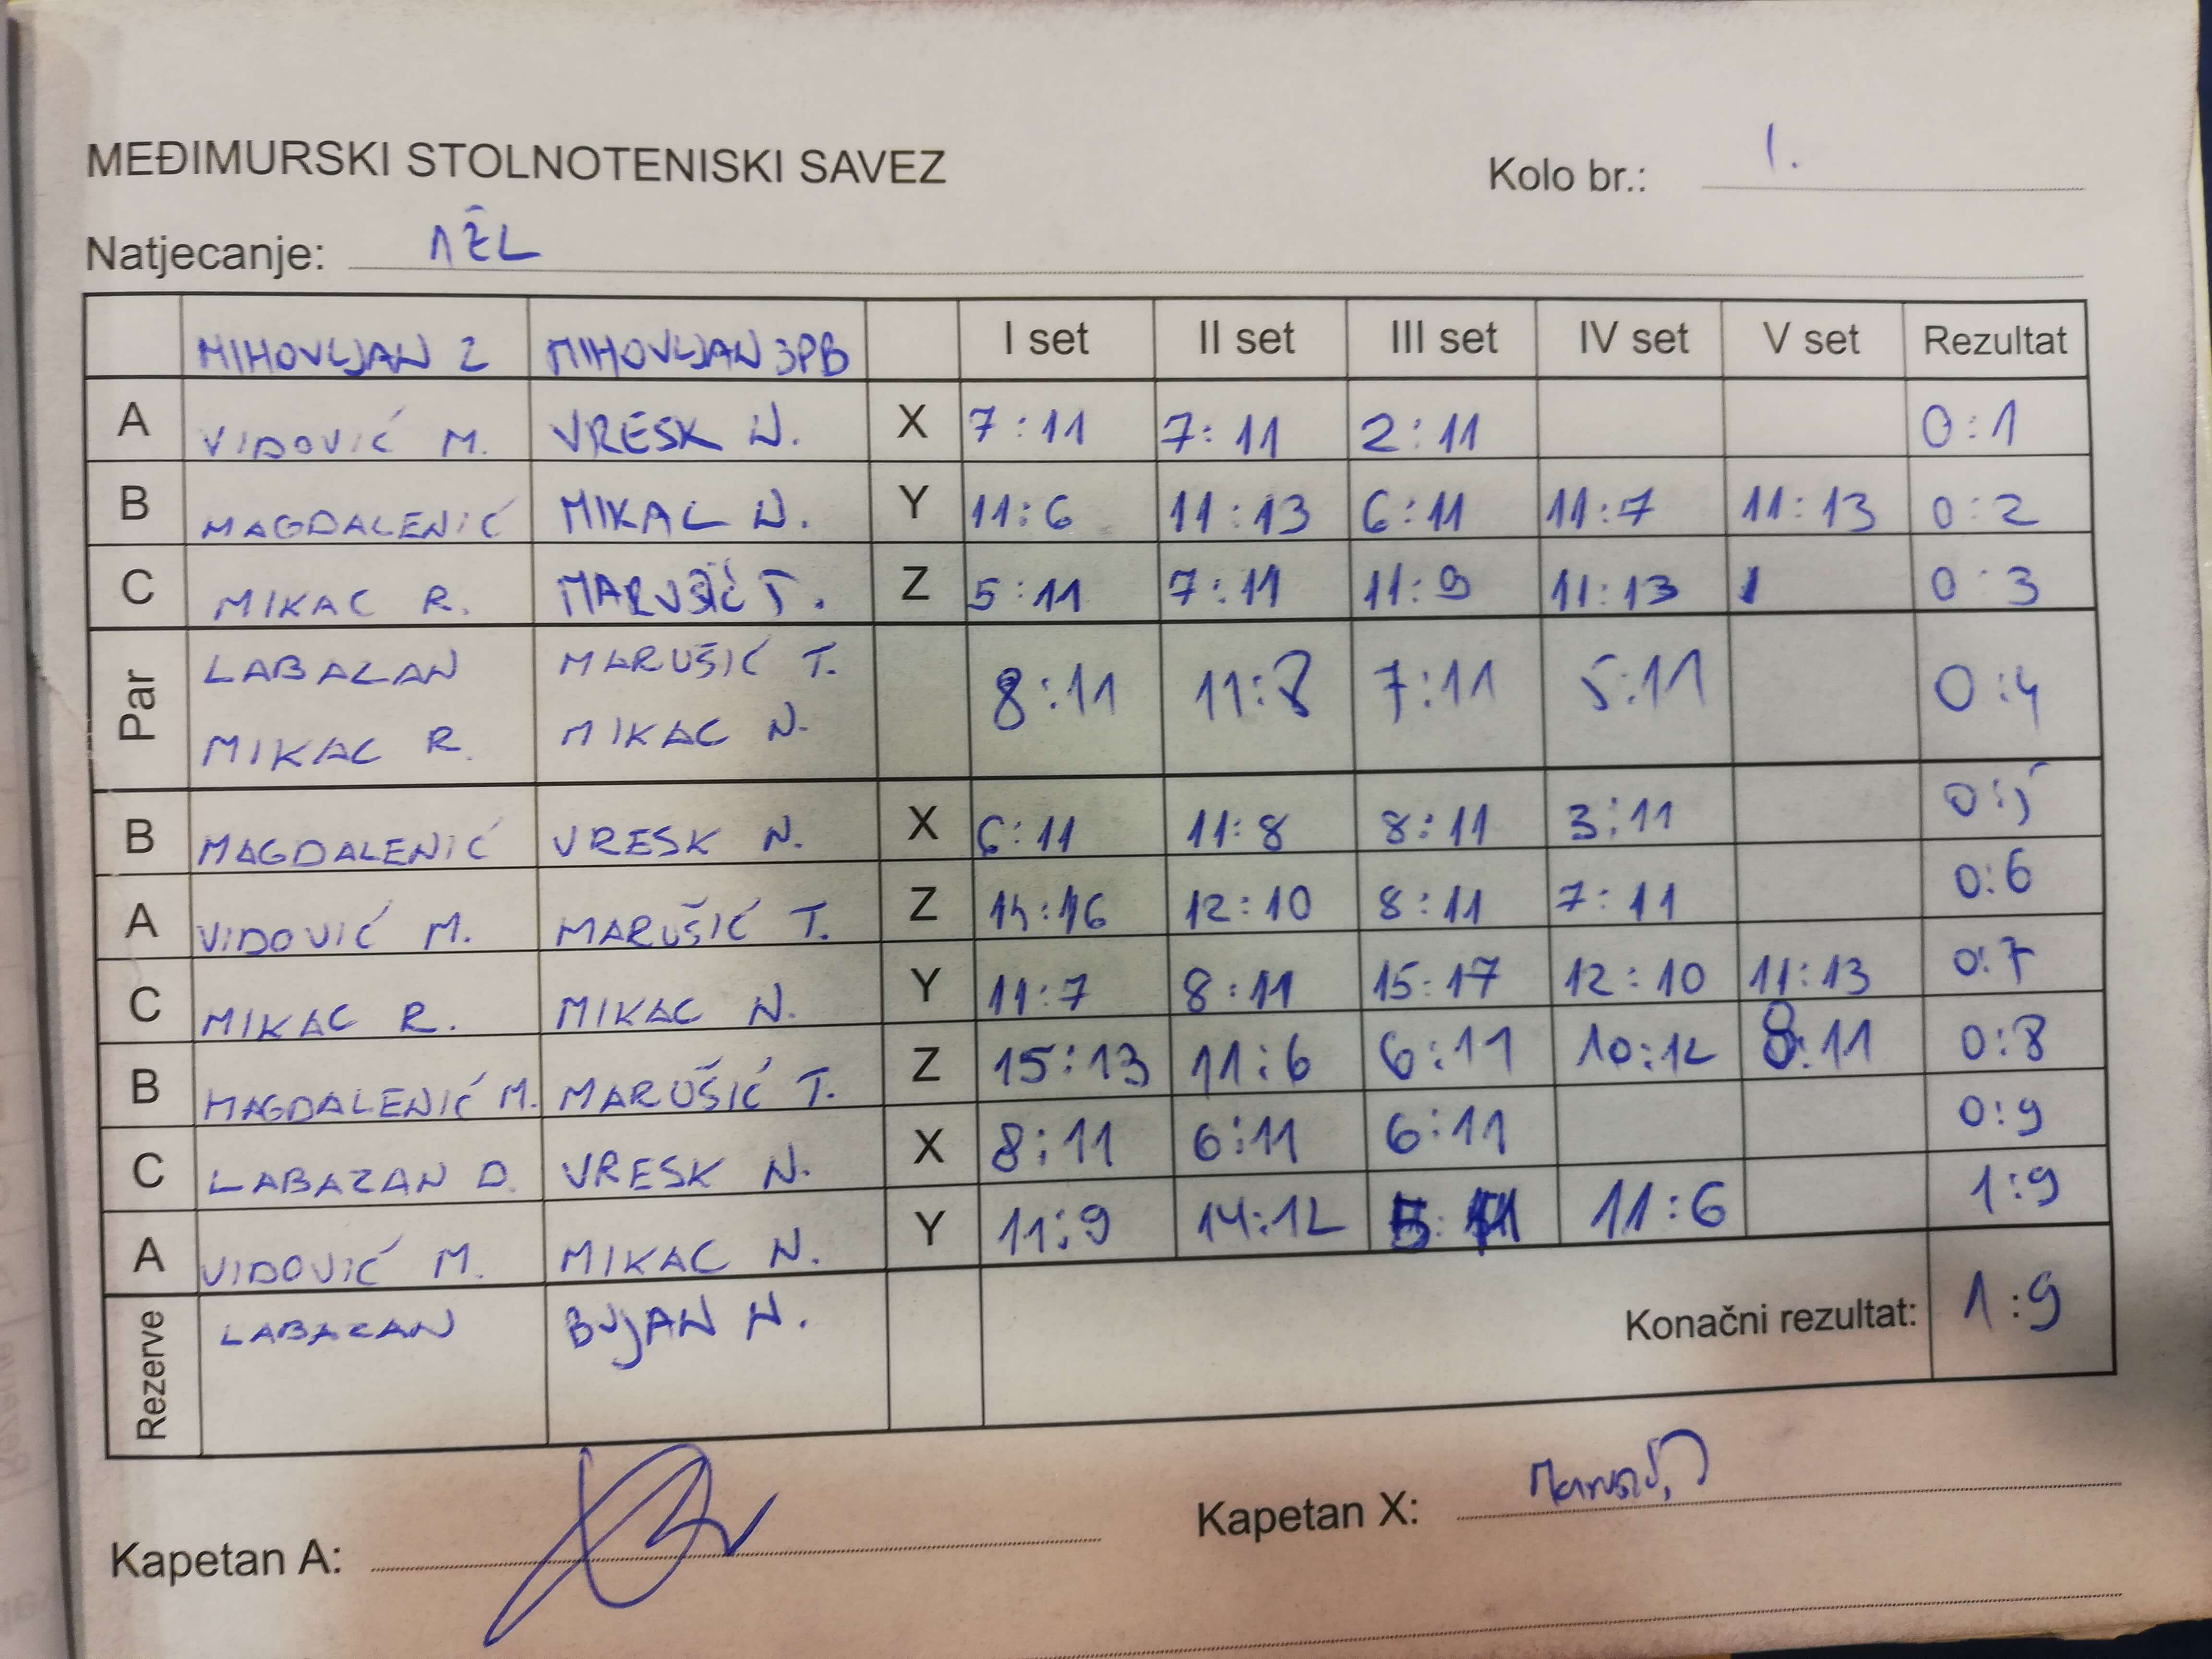 MEĐIMURSKI STOLNOTENISKI SAVEZ Kolo br.: 1.
Natjecanje: 1ŽL
MIHOVLJAN 2 MIHOVLJAN 3PB I set II set III set IV set V set Rezultat
A VIDOVIĆ M. VRESK N. X 7:11 7:11 2:11 0:1
B MAGDALENIĆ MIKAC N. Y 11:6 11:13 6:11 11:7 11:13 0:2
C MIKAC R. MARUŠIĆ T. Z 5:11 7:11 11:9 11:13 0:3
Par LABAZAN MARUŠIĆ T. 8:11 11:8 7:11 5:11 0:4
MIKAC R. MIKAC N.
B MAGDALENIĆ VRESK N. X 6:11 11:8 8:11 3:11 0:5
A VIDOVIĆ M. MARUŠIĆ T. Z 14:16 12:10 8:11 7:11 0:6
C MIKAC R. MIKAC N. Y 11:7 8:11 15:17 12:10 11:13 0:7
B MAGDALENIĆ M. MARUŠIĆ T. Z 15:13 11:6 6:11 10:12 8:11 0:8
C LABAZAN D. VRESK N. X 8:11 6:11 6:11 0:9
A VIDOVIĆ M. MIKAC N. Y 11:9 14:12 5:11 11:6 1:9
Rezerve LABAZAN BUJAN N. Konačni rezultat: 1:9
Kapetan A: Kapetan X: